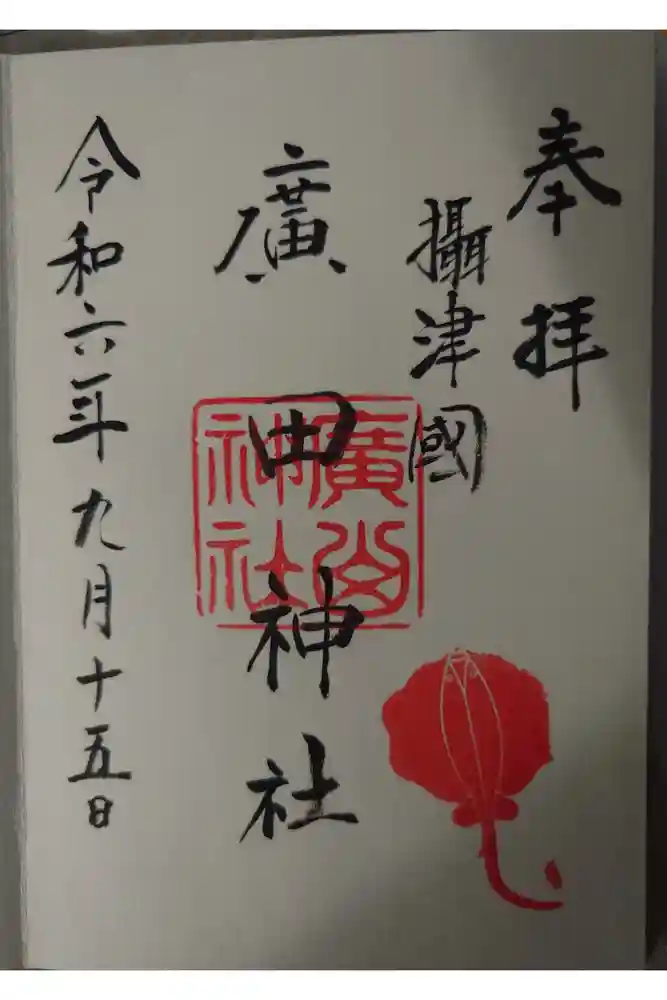 奉拝
攝津國
廣田神社
廣田
神社
令和六年九月十五日